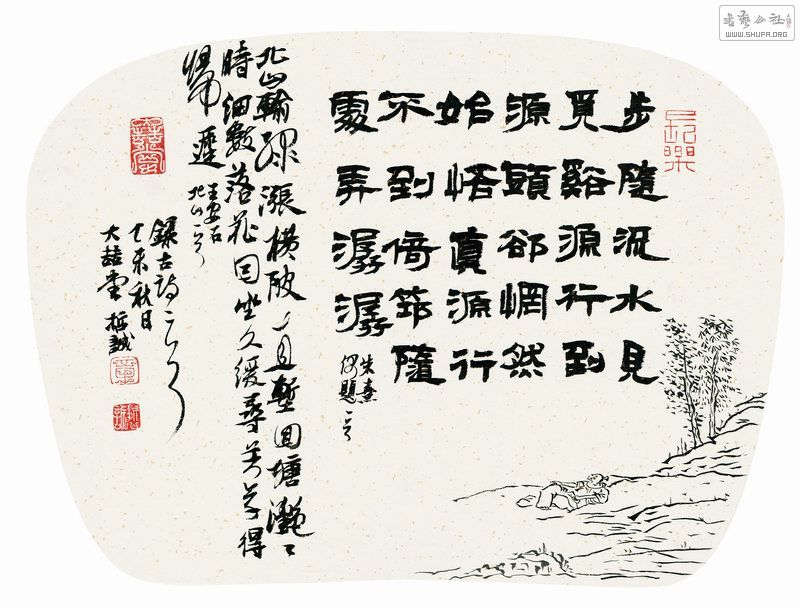 步隨流水見
覓谿源行到
源頭卻惘然
始悟真源行
不到倚筇隨
處弄潺潺
朱熹
偶題一首
北山輸綠漲橫陂直塹回塘灩〻
時細數落花因坐久緩尋芳草得
歸遲
王安石
北山一首
錄古詩二首
乙未秋日
書藝公社
WWW.SHUFA.ORG